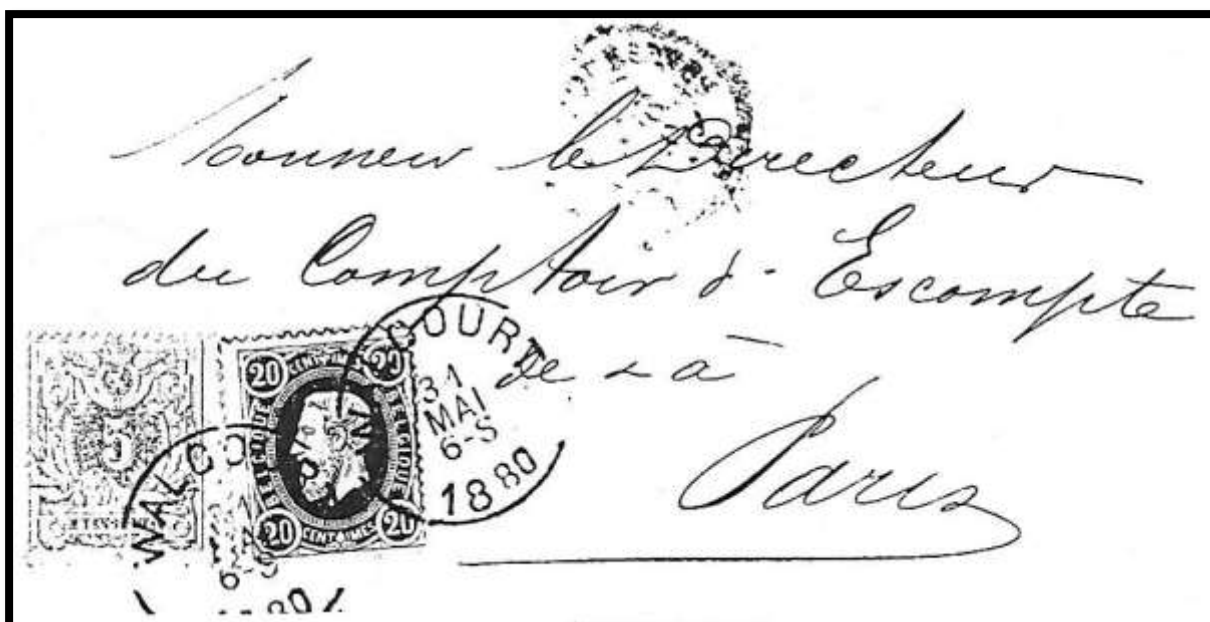 Monsieur le Directeur
du Comptoir d'Escompte
de
Paris
WALCOURT
31
MAI
6-S
1880
20 CENTIMES 20
BELGIQUE BELGIQUE
20 CENTIMES 20
5
WALCOURT
6-S
1880